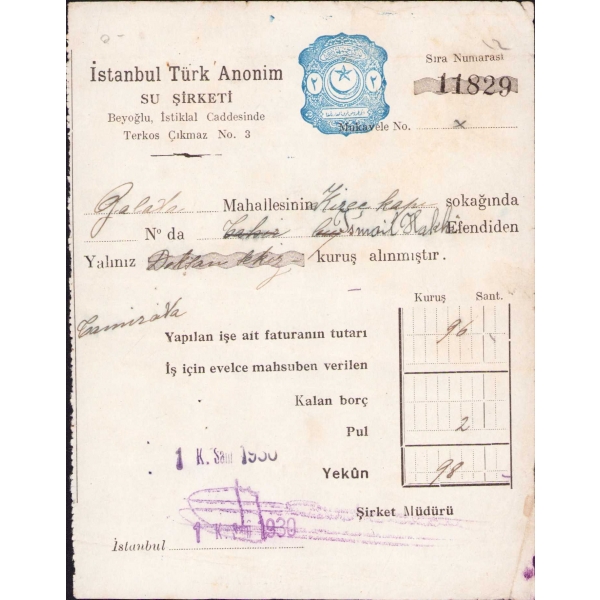 Sıra Numarası
11829
İstanbul Türk Anonim
SU ŞİRKETİ
Beyoğlu, İstiklal Caddesinde
Terkos Çıkmaz No. 3
٢ ٢
Mukavele No. x
Galata Mahallesinin Kireç kapı sokağında
Nº da İsmail Hakkı Efendiden
Yalınız Doksan sekiz kuruş alınmıştır.
Kuruş Sant.
Tamirata
Yapılan işe ait faturanın tutarı 96
İş için evelce mahsuben verilen
Kalan borç
Pul 2
1 K. Sani 1930
Yekûn 98
Şirket Müdürü
1 K. Sani 1930
İstanbul